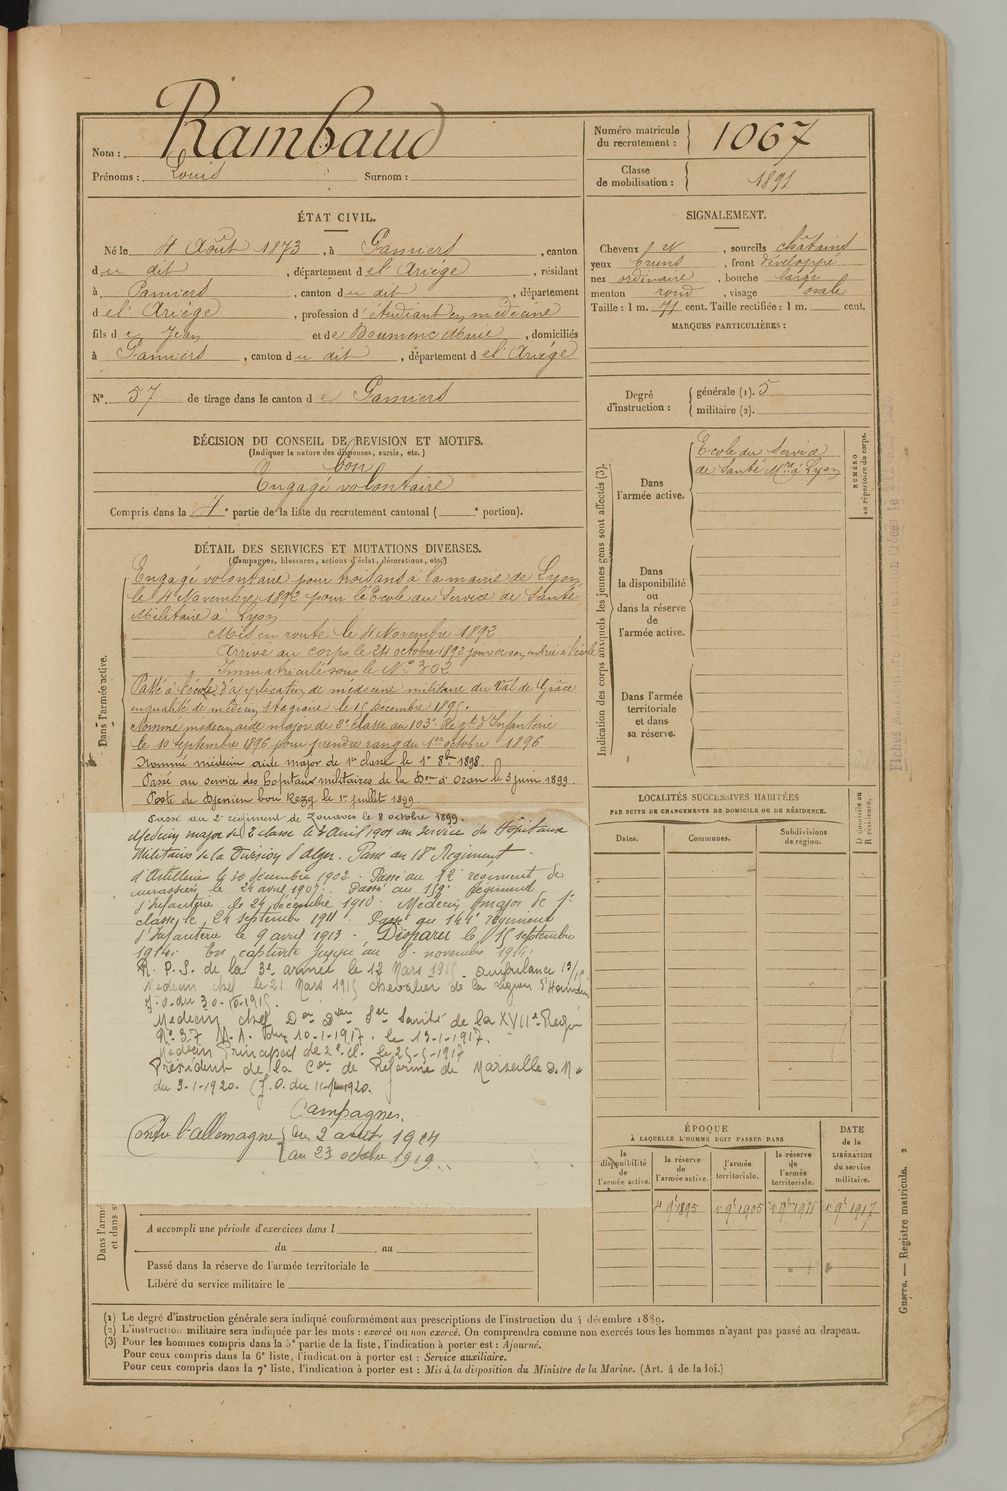 Nom : Rambaud
Prénoms : Louis Surnom :
Numéro matricule du recrutement : 1067
Classe de mobilisation : 1891
ÉTAT CIVIL.
Né le 4 Août 1873, à Pamiers, canton
du dit, département de l'Ariège, résidant
à Pamiers, canton du dit, département
de l'Ariège, profession d'étudiant en médecine
fils de Jean et de Boumenc Marie, domiciliés
à Pamiers, canton du dit, département de l'Ariège
N° 57 de tirage dans le canton de Pamiers
SIGNALEMENT.
Cheveux et, sourcils châtains
yeux bruns, front développé
nez ordinaire, bouche large
menton rond, visage ovale
Taille : 1 m. 71 cent. Taille rectifiée : 1 m. cent.
MARQUES PARTICULIÈRES :
Degré d'instruction : générale (1). 5
militaire (2).
DÉCISION DU CONSEIL DE REVISION ET MOTIFS.
(Indiquer la nature des dispenses, sursis, etc.)
bon
Engagé volontaire
Compris dans la 4e partie de la liste du recrutement cantonal ( e portion).
DÉTAIL DES SERVICES ET MUTATIONS DIVERSES.
(Campagnes, blessures, actions d'éclat, décorations, etc.)
Dans l'armée active.
Engagé volontaire pour trois ans à la mairie de Lyon
le 4 Novembre 1892 pour l'École du Service de Santé
Militaire à Lyon
Mis en route le 4 Novembre 1892
Arrivé au corps le 24 octobre 1892 jour de son entrée à l'école
Immatriculé sous le N° 302
Passé à l'école d'application de médecine militaire du Val de Grâce
en qualité de médecin stagiaire le 15 décembre 1895.
Nommé médecin aide major de 2e classe au 103e Régt d'Infanterie
le 10 septembre 1896 pour prendre rang du 1er octobre 1896
Nommé médecin aide major de 1re classe le 1er 8bre 1898.
Passé au service des hôpitaux militaires de la Don d'Oran le 3 juin 1899.
Poste de Djenien bou Rezg le 1er juillet 1899
Passé au 2e régiment de Zouaves le 8 octobre 1899.
Médecin major de 2e classe le 2 avril 1901 au service des Hôpitaux
Militaires de la Division d'Alger. Passé au 18e Régiment
d'Artillerie le 30 décembre 1902. Passé au 12e régiment de
cuirassiers le 24 avril 1907. Passé au 159e Régiment
d'Infanterie le 24 décembre 1910. Médecin major de 1re
classe le 24 septembre 1911. Passé au 144e régiment
d'Infanterie le 9 avril 1913. Disparu le 15 septembre
1914. En captivité jusqu'au 8 novembre 1914.
R. P. S. de la 3e armée le 12 Mars 1915. ambulance 13/15
Médecin chef le 21 Mars 1915 chevalier de la Légion d'Honneur
J. O. du 30 1915.
Médecin chef Don Ser Santé de la XVIIe Région
N° 37 M. A. 10-1-1917. le 13-1-1917.
Médecin Principal de 2e cl. le 25-5-1917
Président de la Con de Réforme de Marseille D. M.
du 3-1-1920. (J. O. du 1920.
Campagnes.
Contre l'allemagne du 2 août 1914
au 23 octobre 1919.
Indication des corps auxquels les jeunes gens sont affectés (3).
NUMÉRO au répertoire du corps.
Dans l'armée active. École du Service
de Santé Mre à Lyon
Dans la disponibilité ou dans la réserve de l'armée active.
Dans l'armée territoriale et dans sa réserve.
LOCALITÉS SUCCESSIVES HABITÉES
PAR SUITE DE CHANGEMENTS DE DOMICILE OU DE RÉSIDENCE.
Dates. Communes. Subdivisions de région. D domicile ou R résidence.
ÉPOQUE
À LAQUELLE L'HOMME DOIT PASSER DANS
DATE de la LIBÉRATION du service militaire.
la disponibilité de l'armée active.
la réserve de l'armée active.
l'armée territoriale.
la réserve de l'armée territoriale.
4 9bre 1895 1er 9bre 1905 1er 9bre 1911 1er 9bre 1917
A accompli une période d'exercices dans l
du au
Passé dans la réserve de l'armée territoriale le
Libéré du service militaire le
(1) Le degré d'instruction générale sera indiqué conformément aux prescriptions de l'instruction du 4 décembre 1889.
(2) L'instruction militaire sera indiquée par les mots : exercé ou non exercé. On comprendra comme non exercés tous les hommes n'ayant pas passé au drapeau.
(3) Pour les hommes compris dans la 5e partie de la liste, l'indication à porter est : Ajourné.
Pour ceux compris dans la 6e liste, l'indication à porter est : Service auxiliaire.
Pour ceux compris dans la 7e liste, l'indication à porter est : Mis à la disposition du Ministre de la Marine. (Art. 4 de la loi.)
Guerre. — Registre matricule. 2